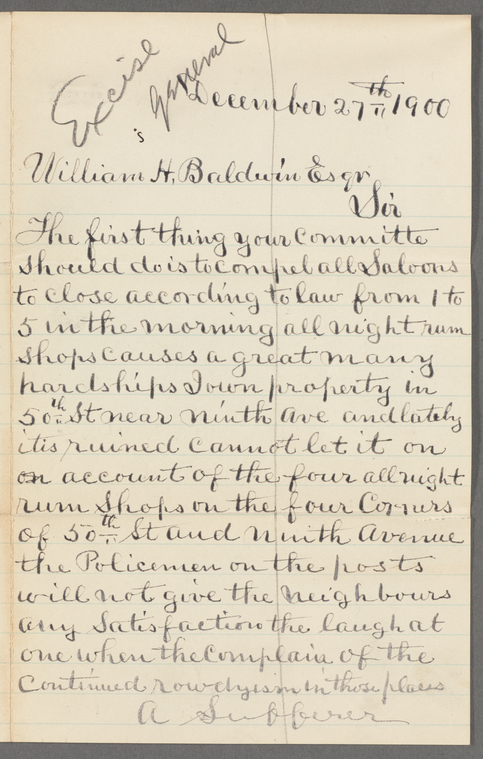 Excise
General
December 27th 1900
William H. Baldwin Esqr
Sir
The first thing your Committe
Should do is to compel all Saloons
to close according to law from 1 to
5 in the morning all night rum
Shops causes a great many
hardships I own property in
50th St near Ninth Ave and lately
it is ruined cannot let it on
on account of the four all night
rum Shops on the four Corners
of 50th St and Ninth Avenue
the Policemen on the posts
will not give the neighbours
any Satisfaction the laugh at
one when the Complain of the
Continued rowdyism in those places
A Sufferer